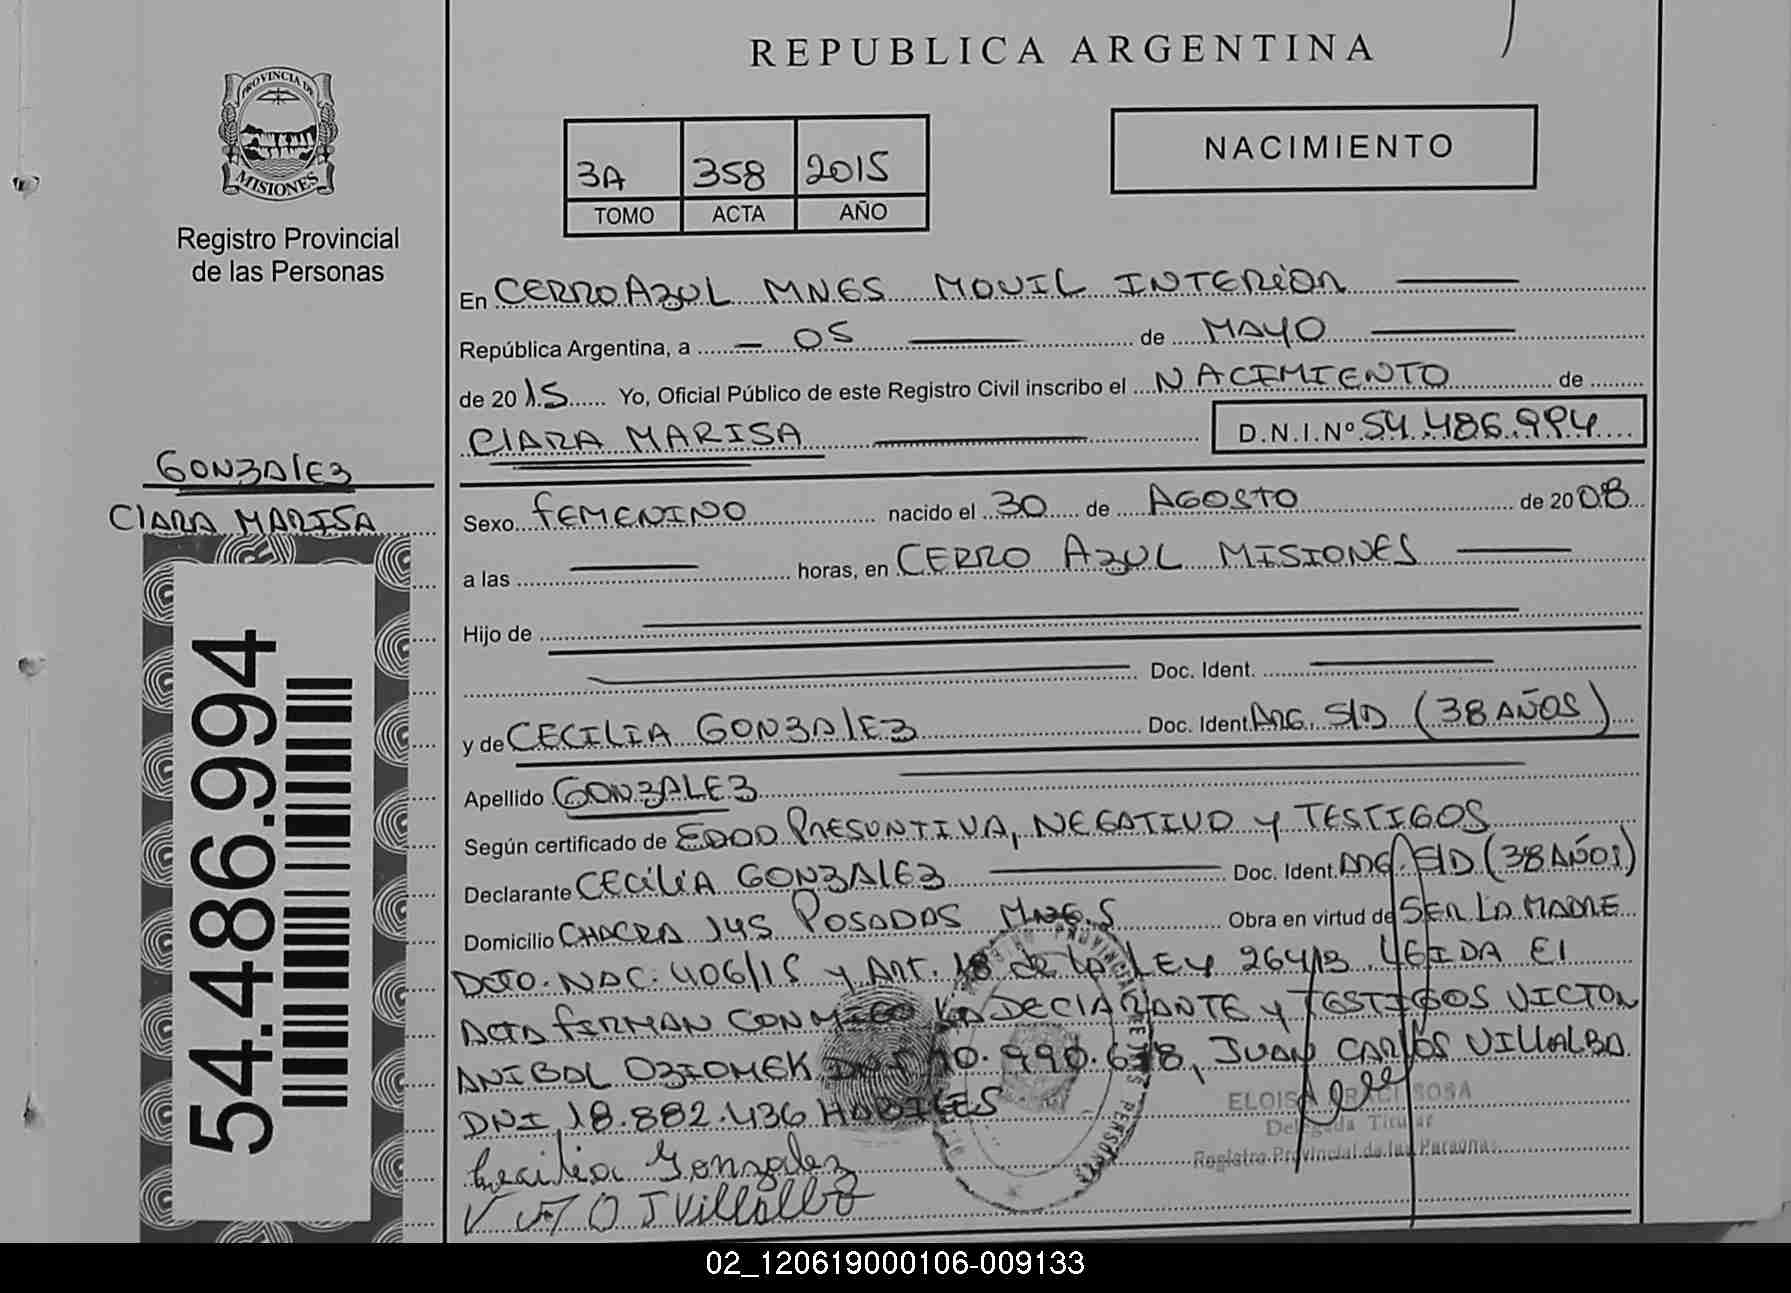 REPUBLICA ARGENTINA
PROVINCIA DE
MISIONES
Registro Provincial
de las Personas
3A 358 2015
TOMO ACTA AÑO
NACIMIENTO
En CERRO AZUL MNES MOVIL INTERIOR
República Argentina, a 05 de MAYO
de 2015 Yo, Oficial Público de este Registro Civil inscribo el NACIMIENTO de
CLARA MARISA D.N.I.Nº 54.486.994
GONZALEZ
CLARA MARISA
54.486.994
Sexo FEMENINO nacido el 30 de AGOSTO de 2008
a las horas, en CERRO AZUL MISIONES
Hijo de
Doc. Ident.
y de CECILIA GONZALEZ Doc. Ident. ARG. S/D (38 AÑOS)
Apellido GONZALEZ
Según certificado de EDAD PRESUNTIVA, NEGATIVO Y TESTIGOS
Declarante CECILIA GONZALEZ Doc. Ident. ARG. S/D (38 AÑOS)
Domicilio CHACRA 145 POSADAS MNES Obra en virtud de SER LA MADRE
DCTO. NAC. 406/15 Y ART. 18 de la LEY 26413 LEIDA EL
ACTA FIRMAN CONMIGO LA DECLARANTE Y TESTIGOS VICTOR
ANIBAL OZIOMEK DNI 10.990.678, JUAN CARLOS VILLALBA
DNI 18.882.436 HABILES
ELOISA SOSA
Delegada Titular
Registro Provincial de las Personas
Cecilia Gonzalez
J Villalba
02_120619000106-009133